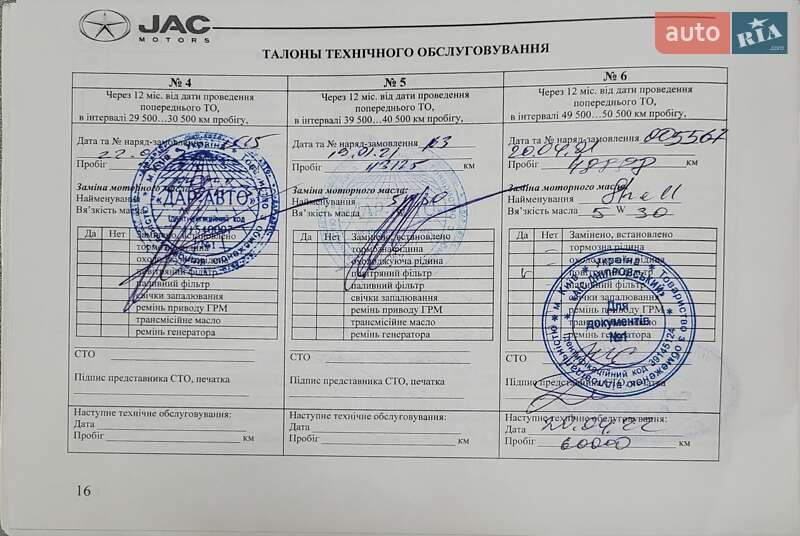 JAC
MOTORS
auto RIA
.com
ТАЛОНЫ ТЕХНІЧНОГО ОБСЛУГОВУВАННЯ
№ 4
Через 12 міс. від дати проведення
попереднього ТО,
в інтервалі 29 500…30 500 км пробігу,
Дата та № наряд-замовлення
Пробіг
Заміна моторного масла:
Найменування
В’язкість масла
Да Нет Замінено, встановлено
тормозна рідина
повітряний фільтр
паливний фільтр
свічки запалювання
ремінь приводу ГРМ
трансмісійне масло
ремінь генератора
СТО
Підпис представника СТО, печатка
Наступне технічне обслуговування:
Дата
Пробіг км
№ 5
Через 12 міс. від дати проведення
попереднього ТО,
в інтервалі 39 500…40 500 км пробігу,
Дата та № наряд-замовлення
19.01.21
Пробіг 43125 км
Заміна моторного масла:
Найменування
В’язкість масла
Да Нет Замінено, встановлено
тормозна рідина
охолоджуюча рідина
повітряний фільтр
паливний фільтр
свічки запалювання
ремінь приводу ГРМ
трансмісійне масло
ремінь генератора
СТО
Підпис представника СТО, печатка
Наступне технічне обслуговування:
Дата
Пробіг км
№ 6
Через 12 міс. від дати проведення
попереднього ТО,
в інтервалі 49 500…50 500 км пробігу,
Дата та № наряд-замовлення 005567
20.04.21
Пробіг км
Заміна моторного масла:
Найменування Shell
В’язкість масла 5 W 30
Да Нет Замінено, встановлено
тормозна рідина
свічки запалювання
ремінь генератора
СТО
Підпис представника СТО, печатка
Наступне технічне обслуговування:
Дата 20.04.22
Пробіг 60000 км
"ДАР-АВТО"
Ідентифікаційний код
№1
Україна м. Київ
Товариство з обмеженою відповідальністю
"ЗАС ДНІПРОВСЬКИЙ"
Для
документів
№1
Ідентифікаційний код 39145124
16